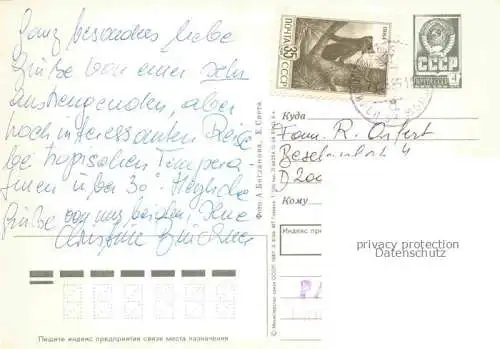 Ganz besonders liebe
Grüße von einer sehr
anstrengenden, aber
hoch interessanten Reise
bei tropischen Tempera-
turen über 30°. Herzliche
Grüße von uns beiden! Ihre
Christine
Фото А. Богданова, Е. Света
© Министерство связи СССР, 1987
ПОЧТА
35
СССР
1980
СССР
4
Куда
Fam. R.
4
D 200
Кому
Индекс пре
privacy protection
Datenschutz
Пишите индекс предприятия связи места назначения